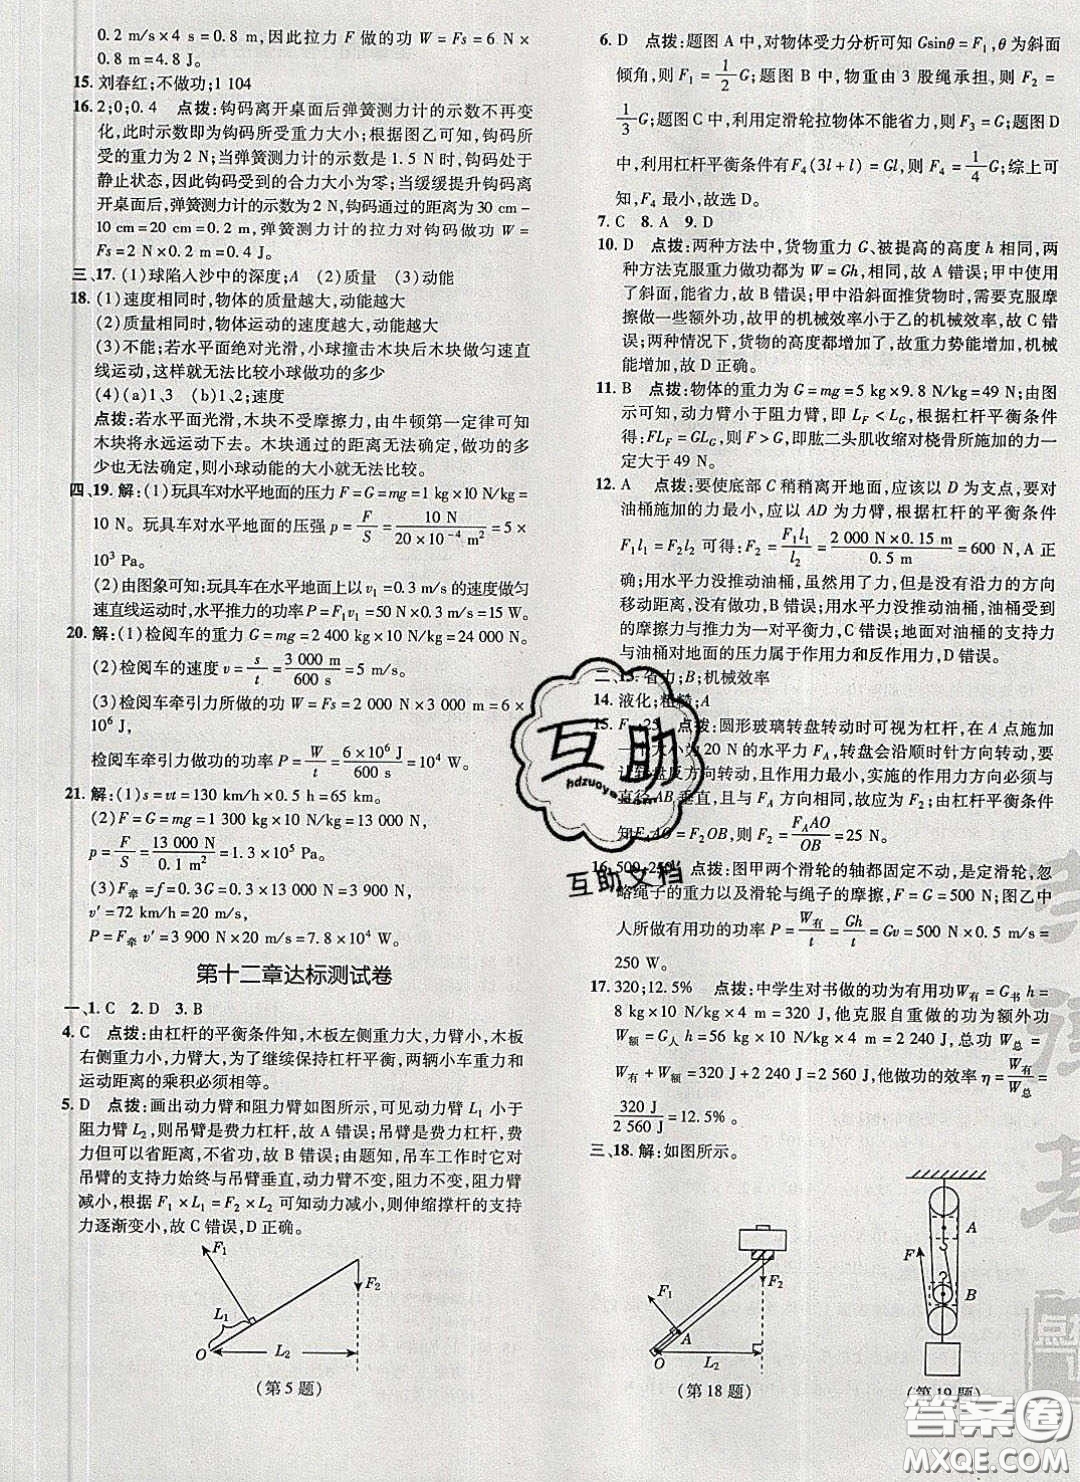 0.2 m/s×4 s=0.8 m,因此拉力 F 做的功 W=Fs=6 N×
0.8 m=4.8 J。
15. 刘春红;不做功;1 104
16. 2;0;0.4　点拨:钩码离开桌面后弹簧测力计的示数不再变
化,此时示数即为钩码所受重力大小;根据图乙可知,钩码所
受的重力为 2 N;当弹簧测力计的示数是 1.5 N 时,钩码处于
静止状态,因此钩码受到的合力大小为零;当缓缓提升钩码离
开桌面后,弹簧测力计的示数为 2 N,钩码通过的距离为 30 cm-
10 cm=20 cm=0.2 m,弹簧测力计的拉力对钩码做功 W=
Fs=2 N×0.2 m=0.4 J。
三、17. (1)球陷入沙中的深度;A　(2)质量　(3)动能
18. (1)速度相同时,物体的质量越大,动能越大
(2)质量相同时,物体运动的速度越大,动能越大
(3)不能;若水平面光滑,小球撞击木块后木块做匀速直
线运动,这样就无法比较小球做功的多少
(4)(a)1、3　(b)1、2;速度
点拨:若水平面光滑,木块不受摩擦力,由牛顿第一定律可知
木块将永远运动下去。木块通过的距离无法确定,做功的多
少也无法确定,则小球动能的大小就无法比较。
四、19. 解:(1)玩具车对水平地面的压力 F=G=mg=1 kg×10 N/kg=
10 N。玩具车对水平地面的压强 p=F/S=10 N/(20×10⁻⁴ m²)=5×
10³ Pa。
(2)由图象可知:玩具车在水平地面上以 v₁=0.3 m/s的速度做匀
速直线运动时,水平推力的功率 P=F₁v₁=50 N×0.3 m/s=15 W。
20. 解:(1)检阅车的重力 G=mg=2 400 kg×10 N/kg=24 000 N。
(2)检阅车的速度 v=s/t=3 000 m/600 s=5 m/s。
(3)检阅车牵引力所做的功 W=Fs=2 000 N×3 000 m=6×
10⁶ J,
检阅车牵引力做功的功率 P=W/t=6×10⁶ J/600 s=10⁴ W。
21. 解:(1)s=vt=130 km/h×0.5 h=65 km。
(2)F=G=mg=1 300 kg×10 N/kg=13 000 N,
p=F/S=13 000 N/0.1 m²=1.3×10⁵ Pa。
(3)F牵=f=0.3G=0.3×13 000 N=3 900 N,
v′=72 km/h=20 m/s,
P=F牵 v′=3 900 N×20 m/s=7.8×10⁴ W。
第十二章达标测试卷
一、1. C　2. D　3. B
4. C　点拨:由杠杆的平衡条件知,木板左侧重力大,力臂小,木板
右侧重力小,力臂大,为了继续保持杠杆平衡,两辆小车重力和
运动距离的乘积必须相等。
5. D　点拨:画出动力臂和阻力臂如图所示,可见动力臂 L₁ 小于
阻力臂 L₂,则吊臂是费力杠杆,故 A 错误;吊臂是费力杠杆,费
力但可以省距离,不省功,故 B 错误;由题知,吊车工作时它对
吊臂的支持力始终与吊臂垂直,动力臂不变,阻力不变,阻力臂
减小,根据 F₁×L₁=F₂×L₂ 可知动力减小,则伸缩撑杆的支持
力逐渐变小,故 C 错误,D 正确。
F₁
F₂
L₁
O
L₂
(第 5 题)
6. D　点拨:题图 A 中,对物体受力分析可知 Gsinθ=F₁,θ 为斜面
倾角,F₁=1/2 G;题图 B 中,物重由 3 股绳承担,则 F₂=
1/3 G;题图 C 中,利用定滑轮拉物体不能省力,则 F₃=G;题图 D
中,利用杠杆平衡条件有 F₄(3l+l)=Gl,得 F₄=1/4 G;综上可
知,F₄ 最小,故选 D。
7. C　8. A　9. D
10. D　点拨:两种方法中,货物重力 G、被提高的高度 h 相同,两
种方法克服重力做功都为 W=Gh,故 A 错误;甲中使用
了斜面,能省力,故 B 错误;甲中沿斜面推货物时,需要克服摩
擦做一些额外功,故甲的机械效率小于乙的机械效率,故 C 错
误;两种情况下,货物的高度都增加了,故重力势能增加,机械
能增加,故 D 正确。
11. B　点拨:物体的重力为 G=mg=5 kg×9.8 N/kg=49 N;由图
示可知,动力臂小于阻力臂,即 LF<LG,根据杠杆平衡条件
得:FLF=GLG,则 F>G,即肱二头肌收缩对桡骨所施加的力一
定大于 49 N。
12. A　点拨:要使底部 C 稍稍离开地面,应该以 D 为支点,要对
油桶施加的力最小,应以 AD 为力臂,根据杠杆的平衡条件
F₁l₁=F₂l₂ 可得:F₂=F₁l₁/l₂=2 000 N×0.15 m/0.5 m=600 N,A 正
确;用水平力没推动油桶,虽然用了力,但是没有沿力的方向
移动距离,没有做功,B 错误;用水平力没推动油桶,油桶受到
的摩擦力与推力为一对平衡力,C 错误;地面对油桶的支持力
与油桶对地面的压力属于作用力和反作用力,D 错误。
二、13. 省力;B;机械效率
14. 液化;粗糙;A
15. 点拨:圆形玻璃转盘转动时可视为杠杆,在 A 点施加
20 N 的水平力 FA,转盘会沿顺时针方向转动,要
反方向转动,且作用力最小,实施的作用力方向必须与
直径 AB 垂直,且与 FA 方向相同,故应为 F₂;根据杠杆平衡条件
知 FA AO=F₂OB,则 F₂=FA AO/OB=25 N。
16. 500;250　点拨:图甲两个滑轮的轴都固定不动,是定滑轮,忽
略绳子的重力以及滑轮与绳子的摩擦,F=G=500 N;图乙中
人所做有用功的功率 P=W有/t=Gh/t=Gv=500 N×0.5 m/s=
250 W。
17. 320;12.5%　点拨:中学生对书做的功为有用功W有=G书 h=
8 kg×10 N/kg×4 m=320 J,他克服自重做的功是额外功
W额=G人 h=56 kg×10 N/kg×4 m=2 240 J,总功 W总=
W有+W额=320 J+2 240 J=2 560 J,他做功的效率 η=W有/W总=
320 J/2 560 J=12.5%。
三、18. 解:如图所示。
F₁
F₂
A
O
L₂
(第 18 题)
F
A
B
(第 19 题)
互助
hdzuoye.com
互助文档
答案圈
MXQE.COM